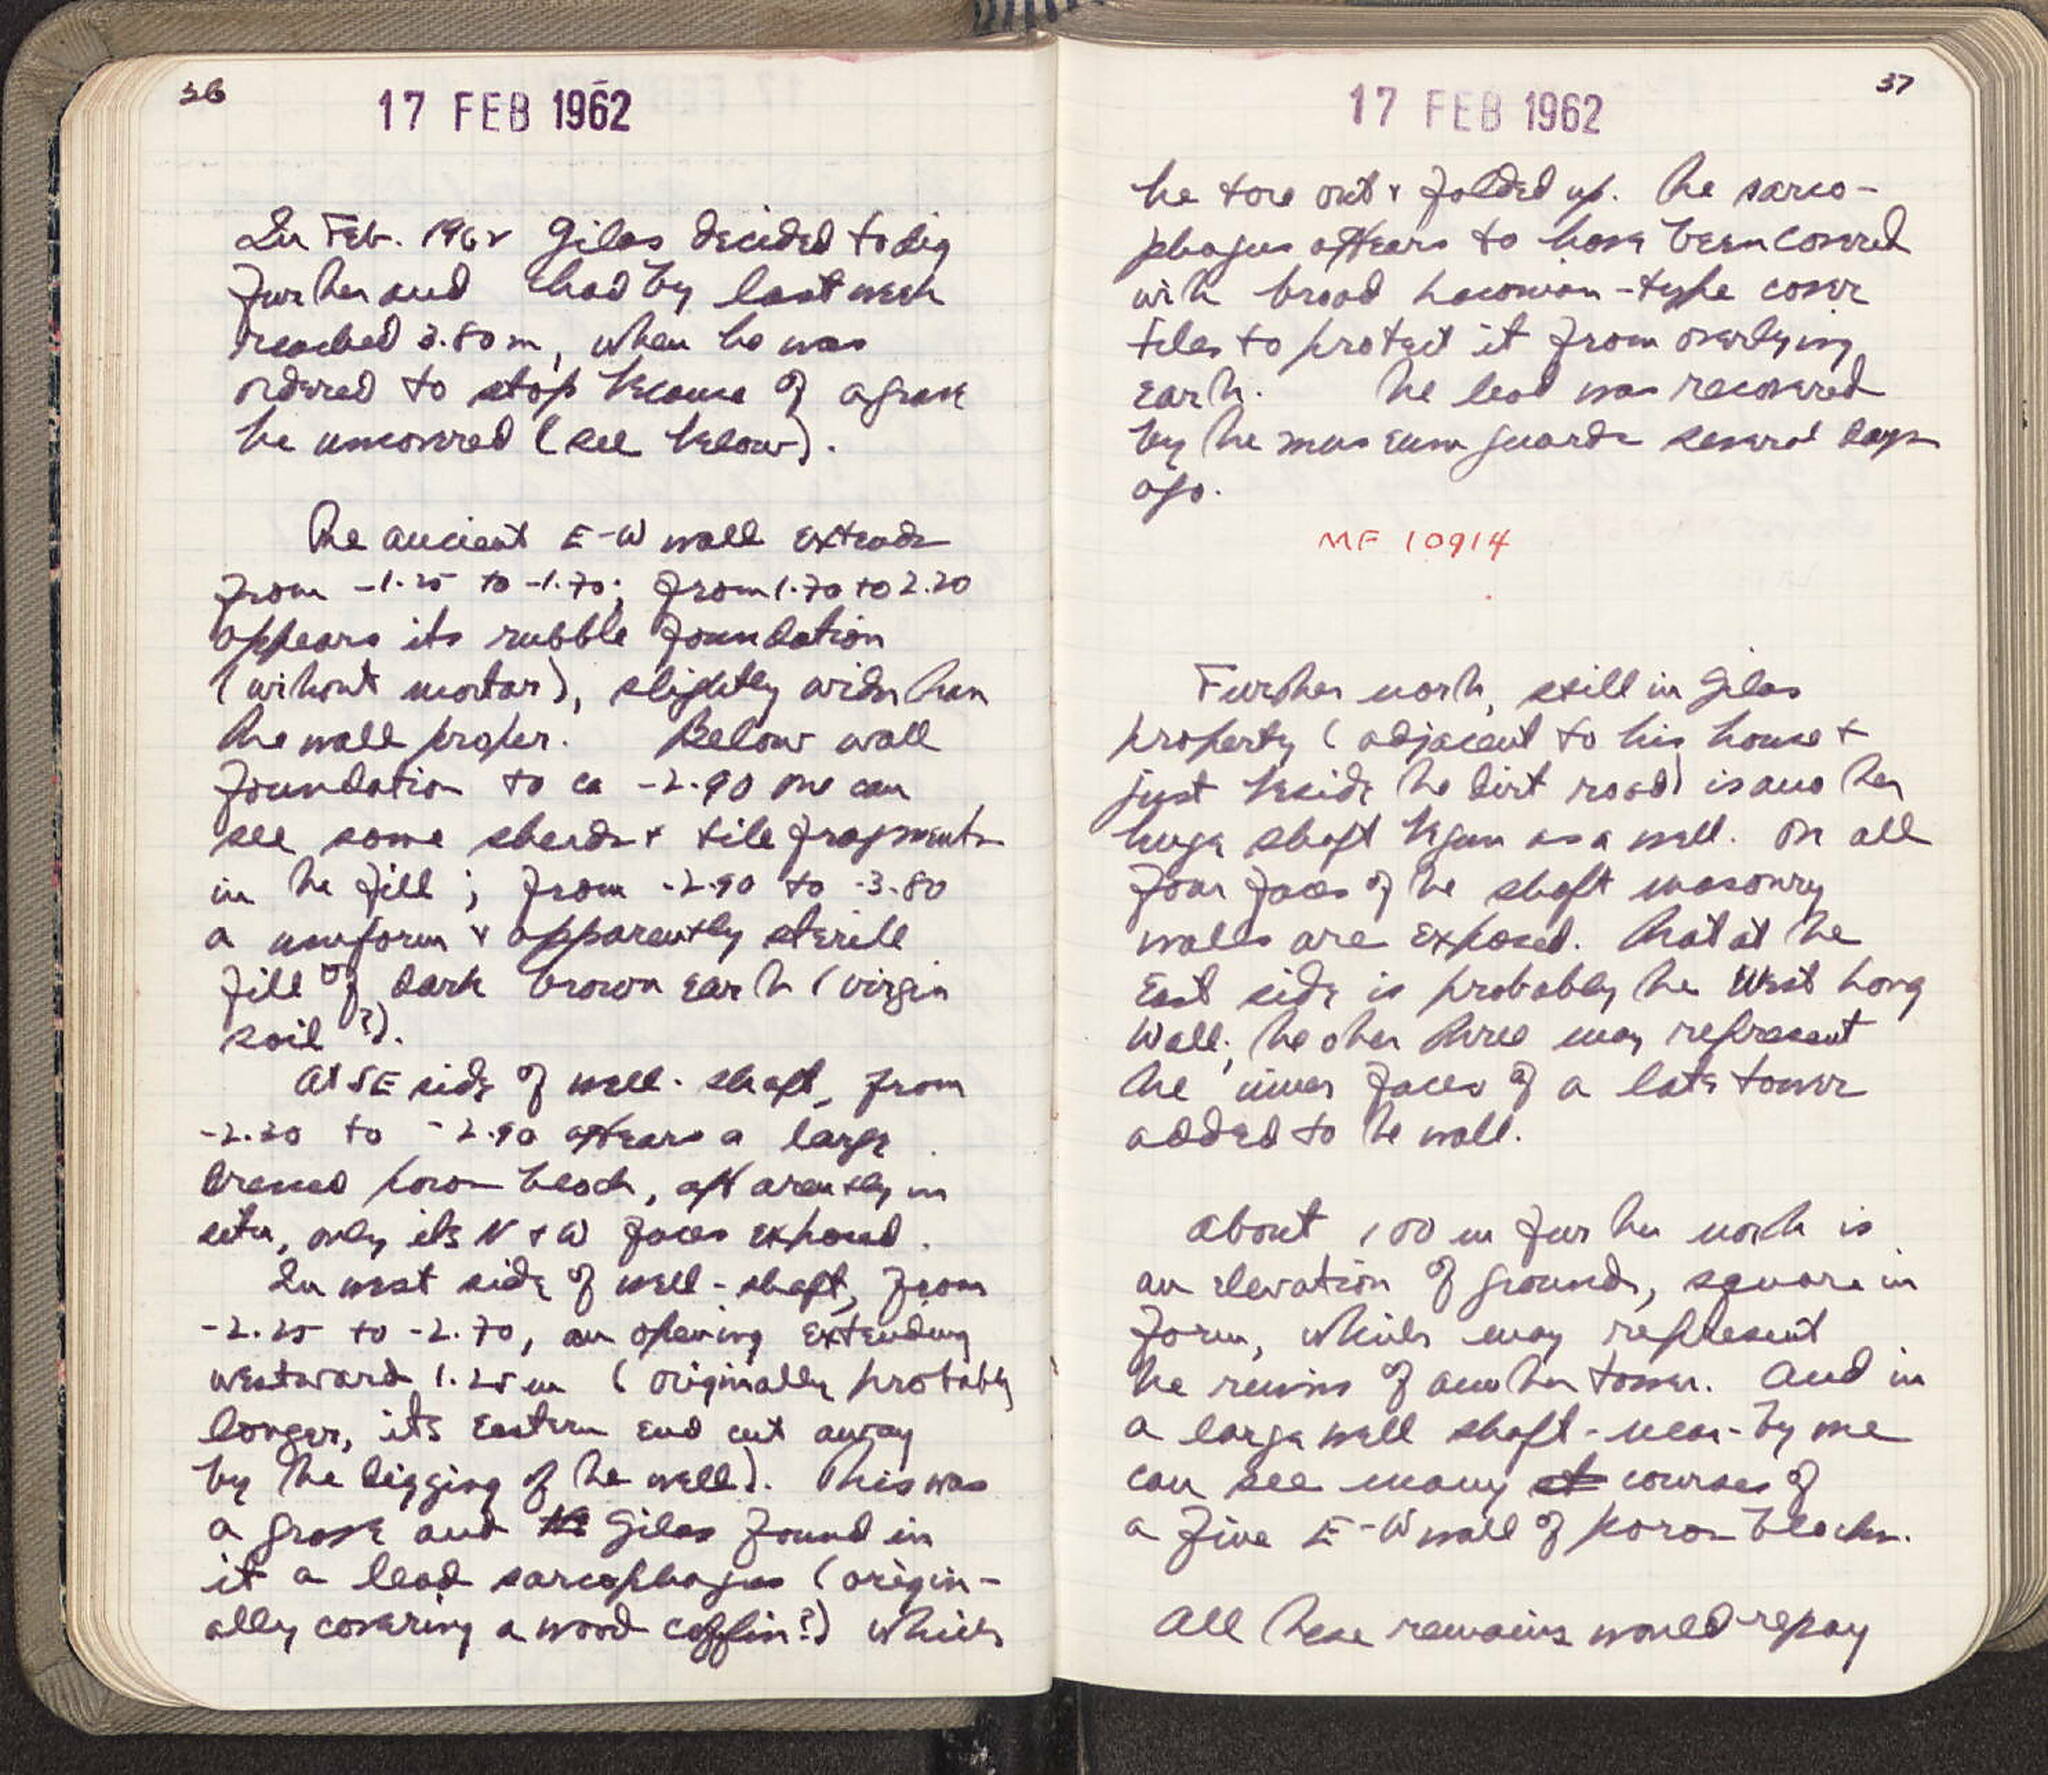 36
17 FEB 1962
In Feb. 1962 Gilas decided to dig
further and had by last week
reached 3.80 m, when he was
ordered to stop because of a grave
he uncovered (see below).
The ancient E-W wall extends
from -1.25 to -1.70; from 1.70 to 2.20
appears its rubble foundation
(without mortar), slightly wider than
the wall proper. Below wall
foundation to ca -2.90 one can
see some sherds + tile fragments
in the fill; from -2.90 to -3.80
a uniform + apparently sterile
fill of dark brown earth (virgin
soil?).
At SE side of well-shaft, from
-2.20 to -2.90 appears a large
dressed poros block, apparently in
situ, only its N + W faces exposed.
In west side of well-shaft, from
-2.25 to -2.70, an opening extending
westward 1.25 m (originally probably
longer, its eastern end cut away
by the digging of the well). This was
a grave and Gilas found in
it a lead sarcophagus (origin-
ally covering a wood coffin?) which
37
17 FEB 1962
he tore out + folded up. The sarco-
phagus appears to have been covered
with broad Laconian-type cover
tiles to protect it from overlying
earth. The lead was recovered
by the museum guards several days
ago.
MF 10914
Further north, still in Gilas
property (adjacent to his house +
just beside the dirt road) is another
huge shaft begun as a well. On all
four faces of the shaft masonry
walls are exposed. That at the
East side is probably the West Long
Wall; the other three may represent
the inner faces of a late tower
added to the wall.
About 100 m further north is
an elevation of ground, square in
form, which may represent
the ruins of another tower. And in
a large well shaft near-by one
can see many courses of
a fine E-W wall of poros blocks.
All these remains would repay